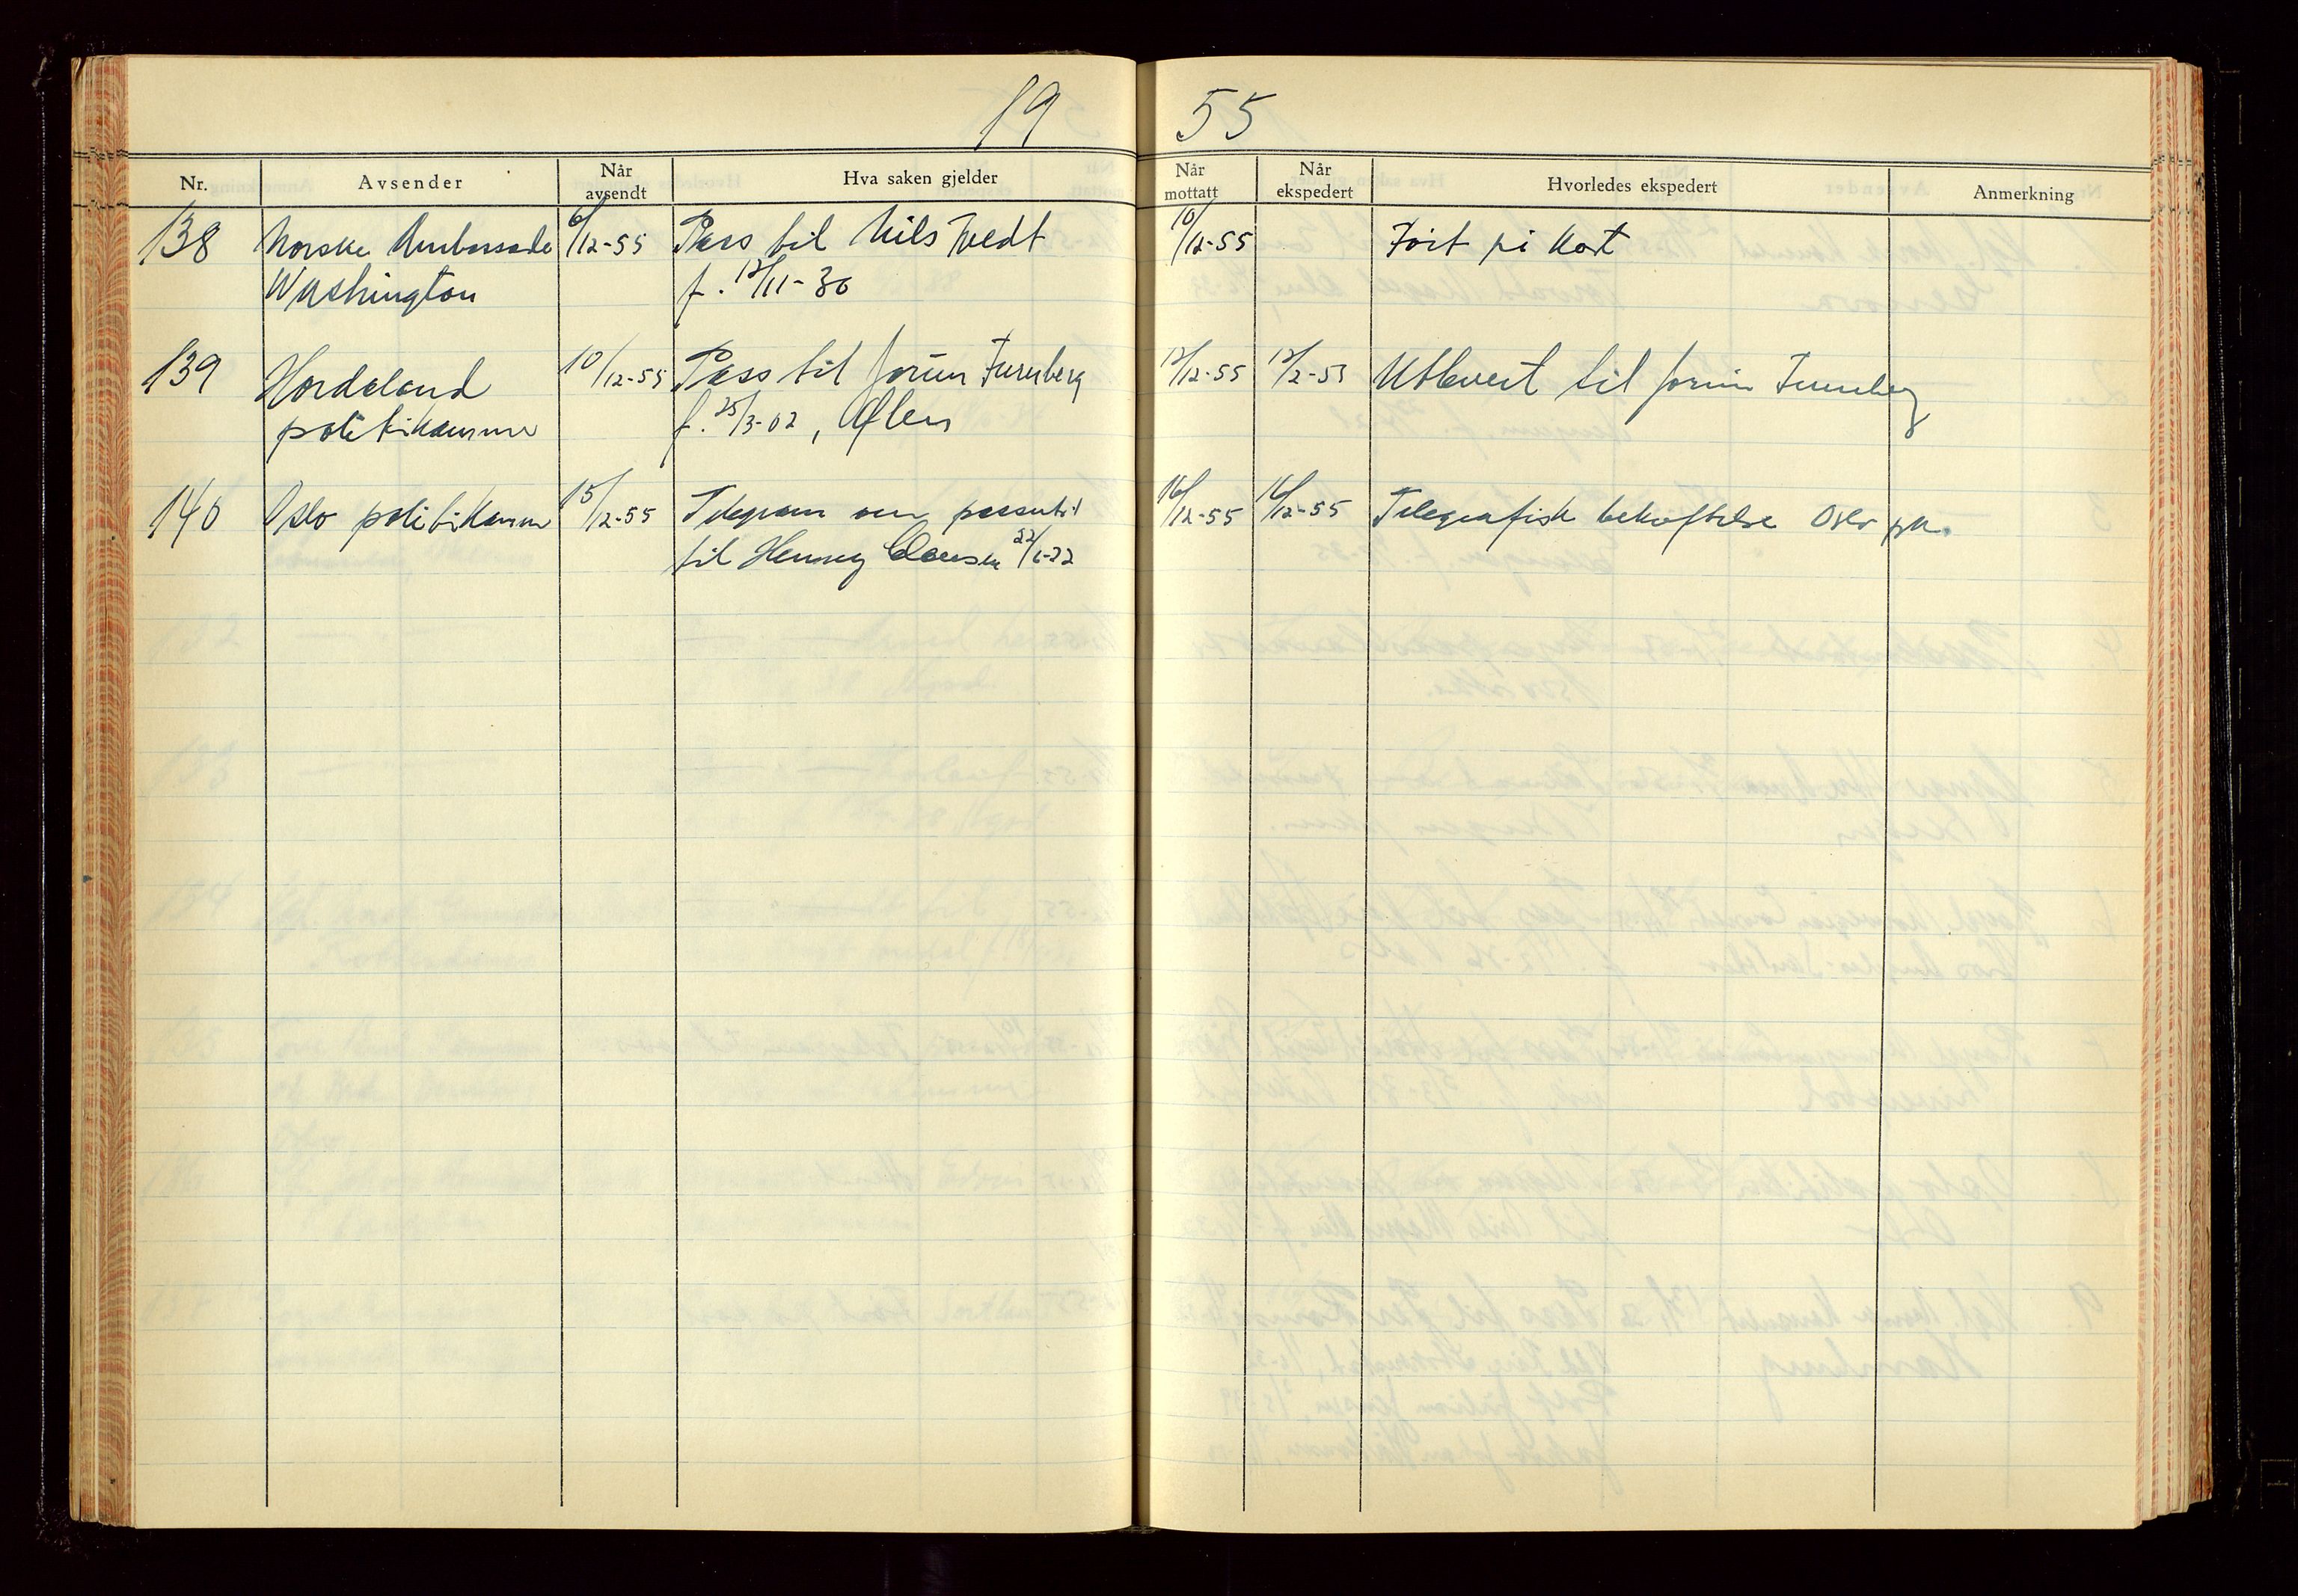 19 55
Nr. Avsender Når avsendt Hva saken gjelder Når mottatt Når ekspedert Hvorledes ekspedert Anmerkning
138 Norske Ambassade 6/12-55 Pass til Nils Tvedt 10/12-55 Ført på kort
Washington f. 12/11-30
139 Hordaland 10/12-55 Pass til Jørun Furuberg 12/12-55 12/12-55 Utlevert til Jørun Furuberg
politikammer f. 25/3-02, Ølen
140 Oslo politikammer 15/12-55 Telegram om passutst 16/12-55 16/12-55 Telegrafisk bekreftelse Oslo pk.
til Henny Clausen 22/6-22